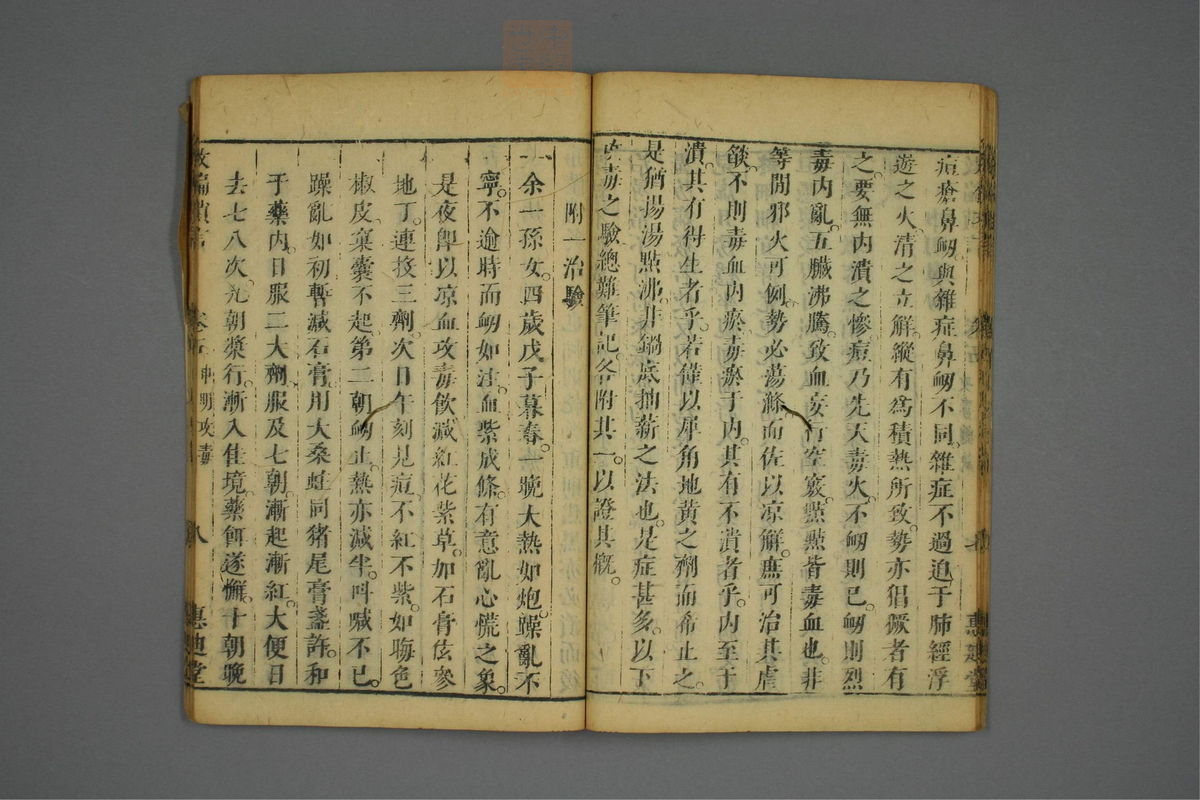 痘瘡鼻衂與雜症鼻衂不同雜症不過迫于肺經浮
遊之火清之立解縱有爲積熱所致勢亦猖獗者有
之要無内潰之慘痘乃先天毒火不衂則已衂則烈
毒内亂五臟沸騰致血妄行空竅點點皆毒血也非
等閒邪火可例勢必蕩滌而佐以凉解庶可治其虐
燄不則毒血内瘀毒瘀于内其有不潰者乎内至于
潰其有得生者乎若僅以犀角地黃之劑而希止之
是猶揚湯㸃沸非鍋底抽薪之法也是症甚多以下
攻毒之驗總難筆記各附其一以證其概
附一治驗
一余一孫女四歲戊子暮春一晚大熱如炮躁亂不
寧不逾時而衂如注血紫成條有意亂心慌之象
是夜卽以凉血攻毒飲減紅花紫草加石膏玄參
地丁連投三劑次日午刻見痘不紅不紫如晦色
椒皮窠囊不起第二朝衂止熱亦減半呌喊不已
躁亂如初暫減石膏用大桑蛀同猪尾膏盞許和
于藥内日服二大劑服及七朝漸起漸紅大便日
去七八次九朝漿行漸入佳境藥餌遂懈十朝晚
救偏瑣言 卷五 申明攻毒 八 惠迪堂